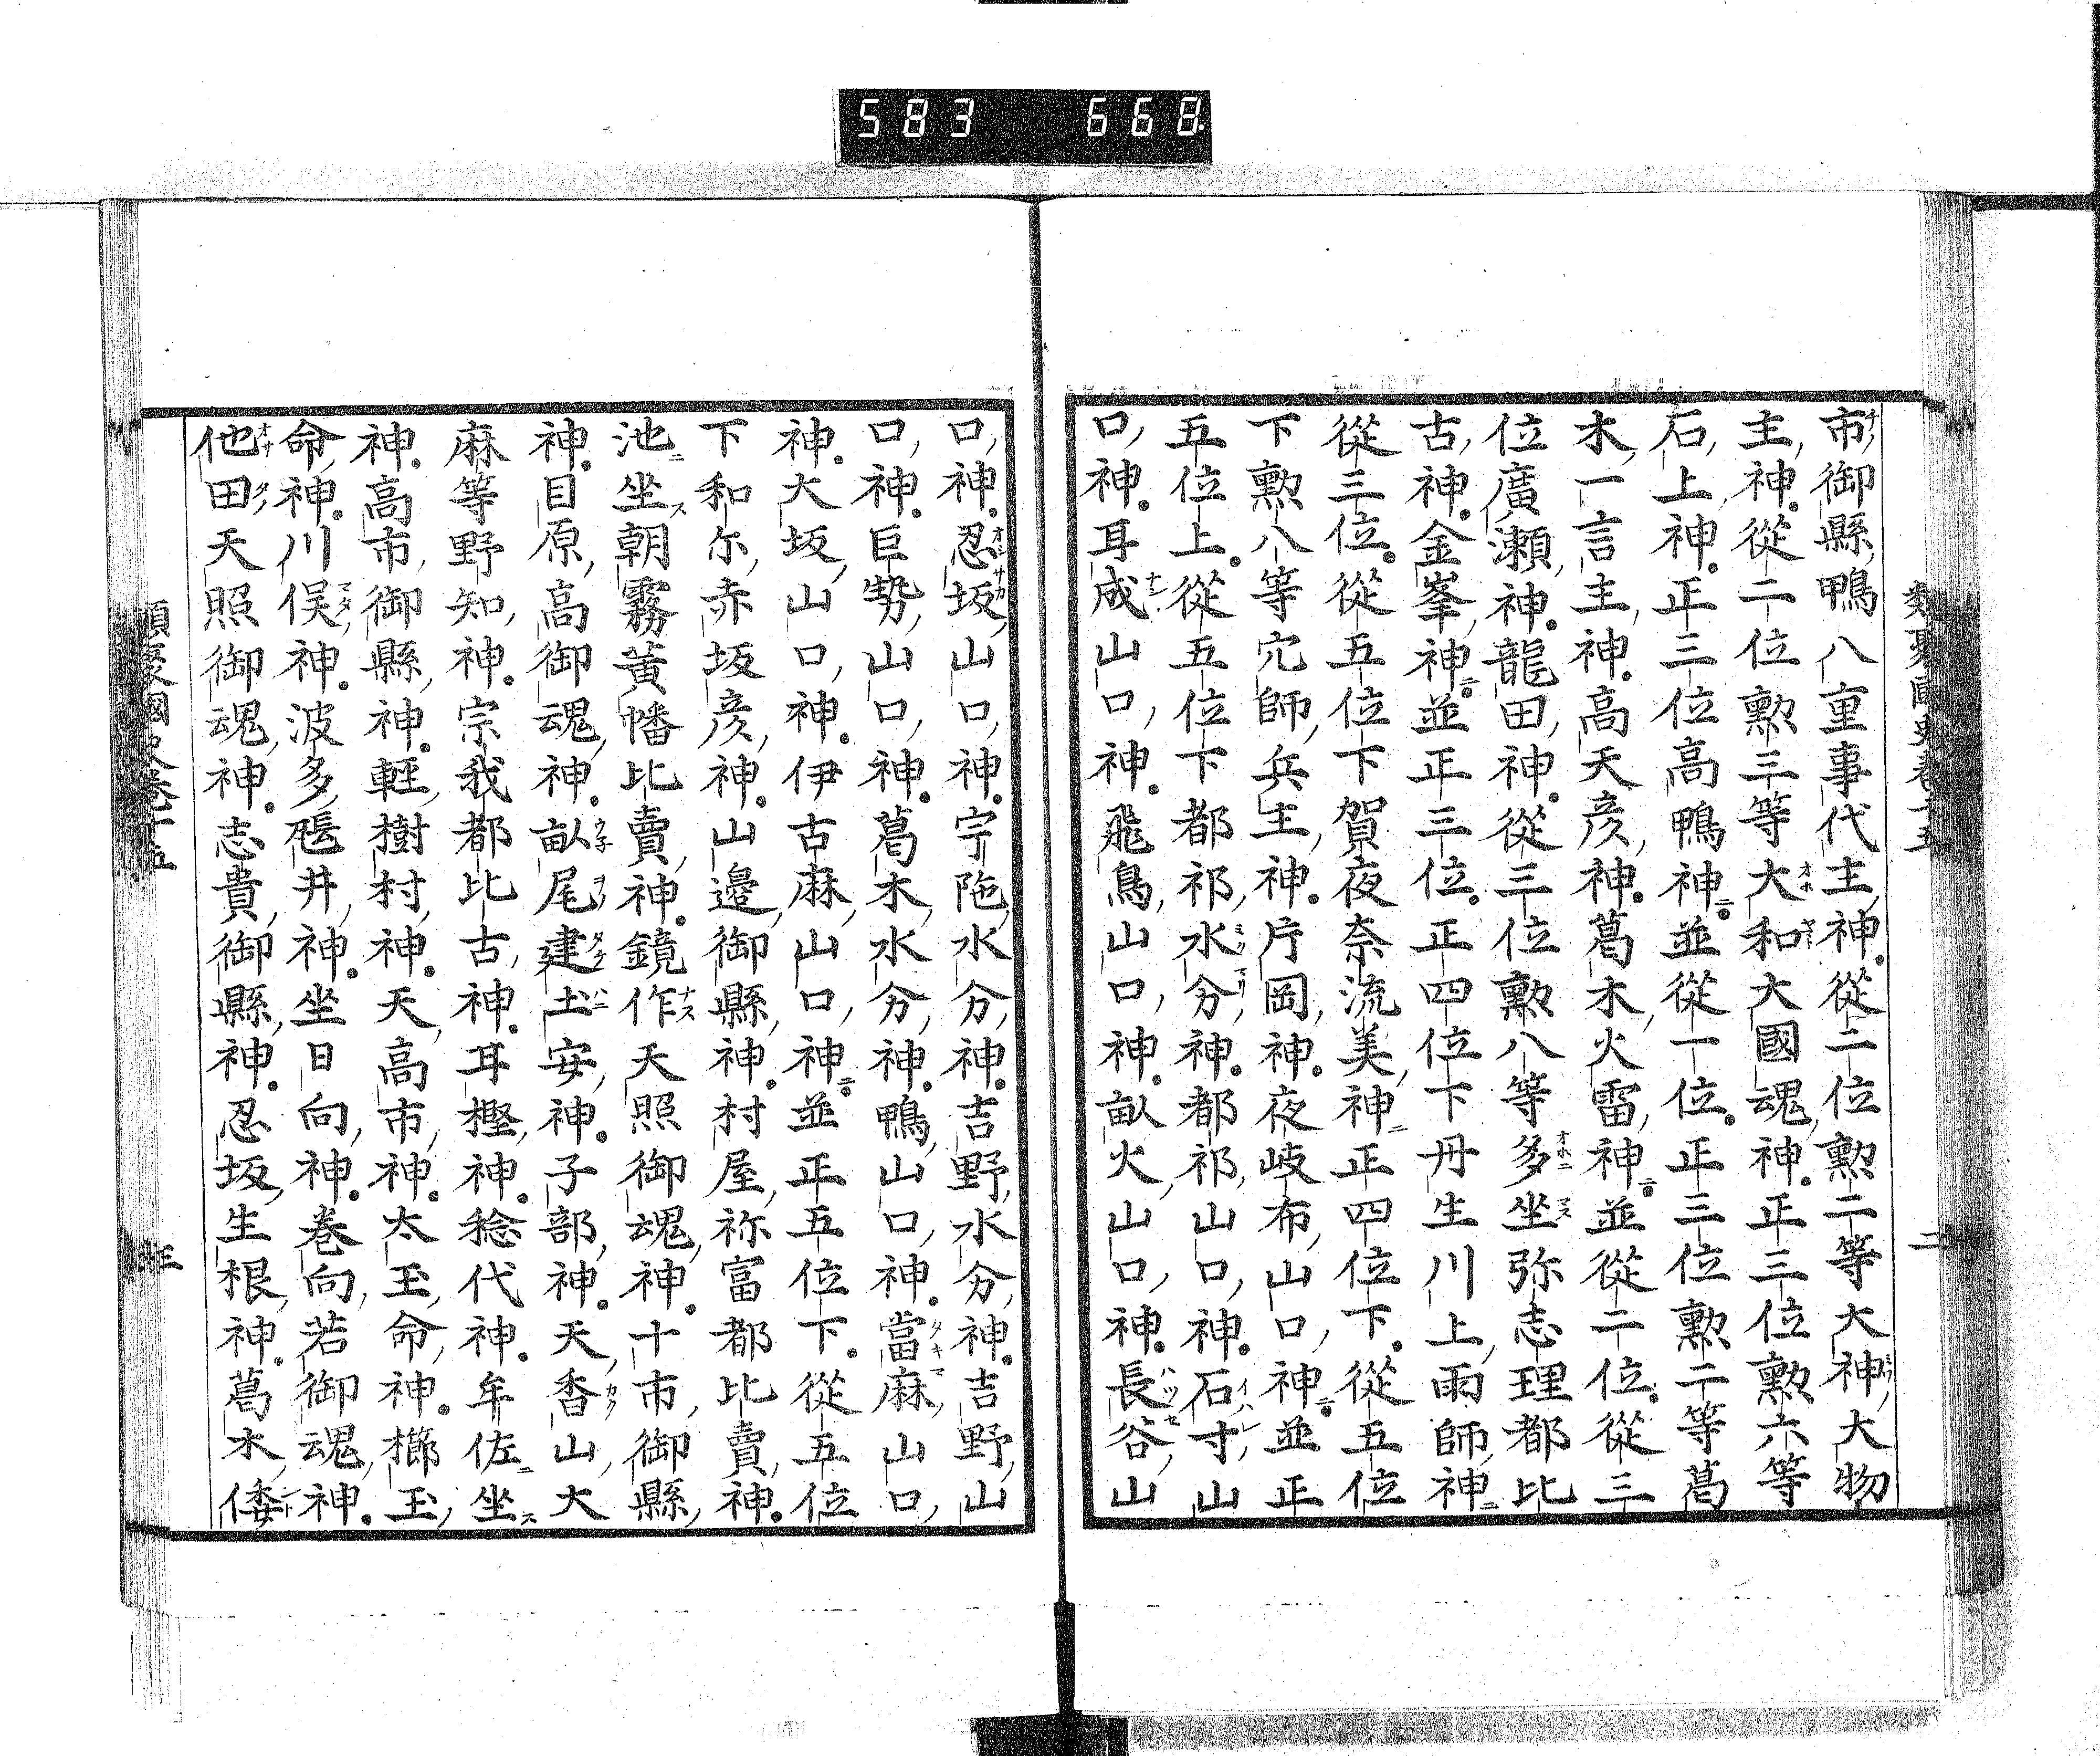 583 668
類聚國史卷十五 二
市御縣鴨八重事代主神從二位勲二等大神大物
主神從二位勲三等大和大國魂神正三位勲六等
石上神正三位高鴨神並從一位正三位勲二等葛
木一言主神高天彦神葛木火雷神並從二位從三
位廣瀬神龍田神從三位勲八等多坐弥志理都比
古神金峯神並正三位正四位下丹生川上雨師神
從三位從五位下賀夜奈流美神正四位下從五位
下勲八等穴師兵主神片岡神夜岐布山口神並正
五位上從五位下都祁水分神都祁山口神石寸山
口神耳成山口神飛鳥山口神畝火山口神長谷山
口神忍坂山口神宇陁水分神吉野水分神吉野山
口神巨勢山口神葛木水分神鴨山口神當麻山口
神大坂山口神伊古麻山口神並正五位下從五位
下和尓赤坂彦神山邊御縣神村屋祢富都比賣神
池坐朝霧黄幡比賣神鏡作天照御魂神十市御縣
神目原高御魂神畝尾建土安神子部神天香山大
麻等野知神宗我都比古神耳樫神稔代神牟佐坐
神高市御縣神輕樹村神天高市神太玉命神櫛玉
命神川俣神波多𤭖井神坐日向神卷向若御魂神
他田天照御魂神志貴御縣神忍坂生根神葛木倭
類聚國史卷十五 三